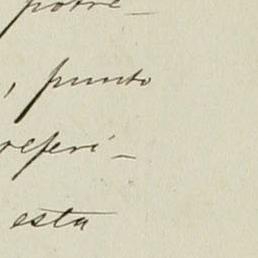 potre-
, punto
referi-
esta